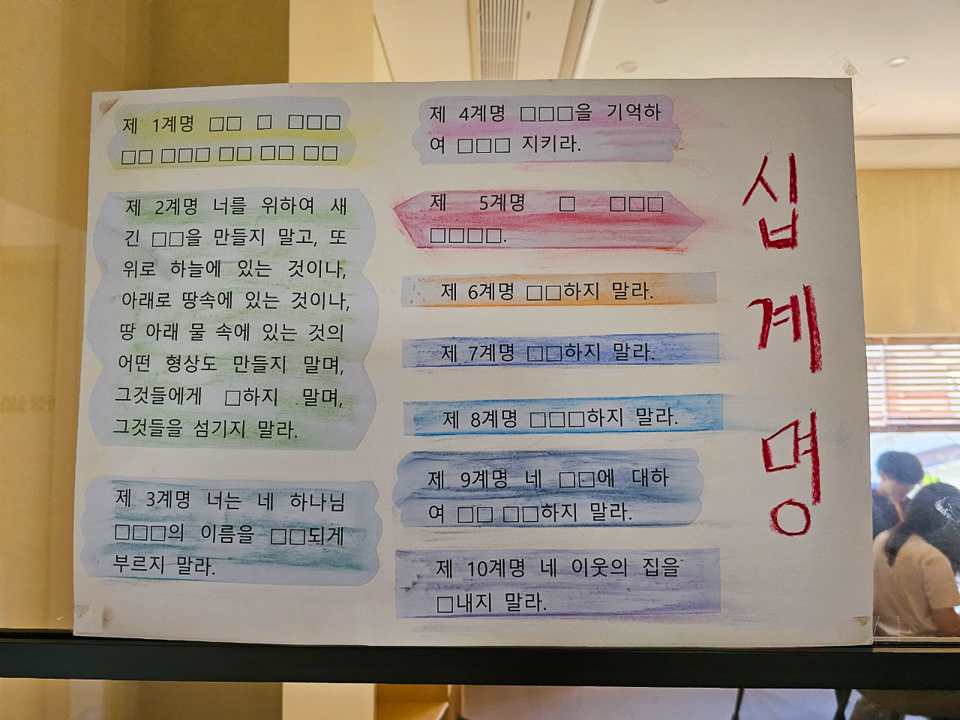 제 1계명 □□ □ □□□
□□ □□□ □□ □□ □□
제 2계명 너를 위하여 새
긴 □□을 만들지 말고, 또
위로 하늘에 있는 것이나,
아래로 땅속에 있는 것이나,
땅 아래 물 속에 있는 것의
어떤 형상도 만들지 말며,
그것들에게 □하지 말며,
그것들을 섬기지 말라.
제 3계명 너는 네 하나님
□□□의 이름을 □□되게
부르지 말라.
제 4계명 □□□을 기억하
여 □□□ 지키라.
제 5계명 □ □□□
□□□□.
제 6계명 □□하지 말라.
제 7계명 □□하지 말라.
제 8계명 □□□하지 말라.
제 9계명 네 □□에 대하
여 □□ □□하지 말라.
제 10계명 네 이웃의 집을
□내지 말라.
십
계
명